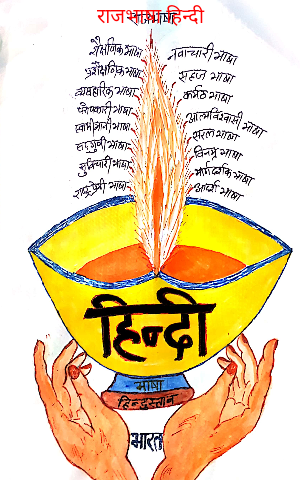 राजभाषा हिन्दी
शैक्षणिक भाषा
प्रशैक्षणिक भाषा
व्यवहारिक भाषा
परोपकारी भाषा
स्वाभिमानी भाषा
सद्गुणी भाषा
सुविचारी भाषा
राष्ट्रप्रेमी भाषा
नवाचारी भाषा
सहज भाषा
कर्मठ भाषा
आत्मविश्वासी भाषा
सरल भाषा
विनम्र भाषा
मार्गदर्शक भाषा
आदर्श भाषा
हिन्दी
भाषा
हिन्दुस्तान
भारत